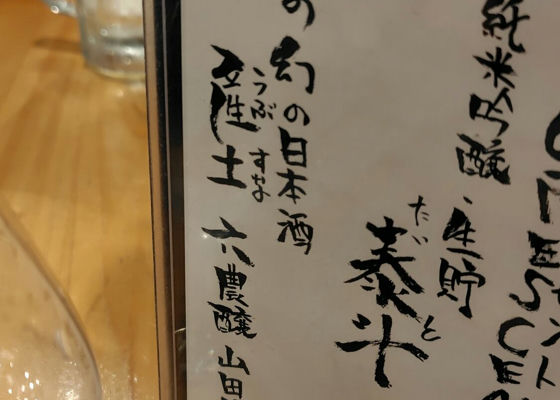 純米吟醸・生貯
たいと
泰斗
の幻の日本酒
うぶすな
産土 六農醸 山田